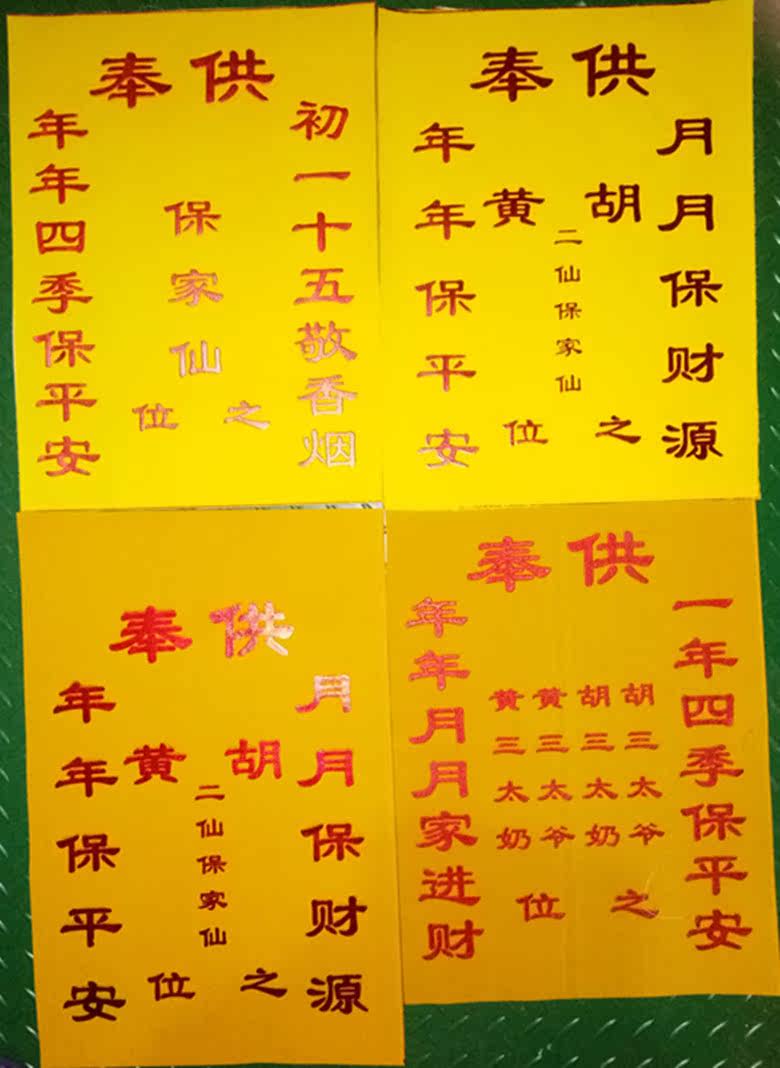 供奉
初一十五敬香烟
保家仙
之位
年年四季保平安
供奉
月月保财源
胡黄
二仙保家仙
之位
年年保平安
供奉
月月保财源
胡黄
二仙保家仙
之位
年年保平安
供奉
一年四季保平安
胡三太爷
胡三太奶
黄三太爷
黄三太奶
之位
年年月月家进财